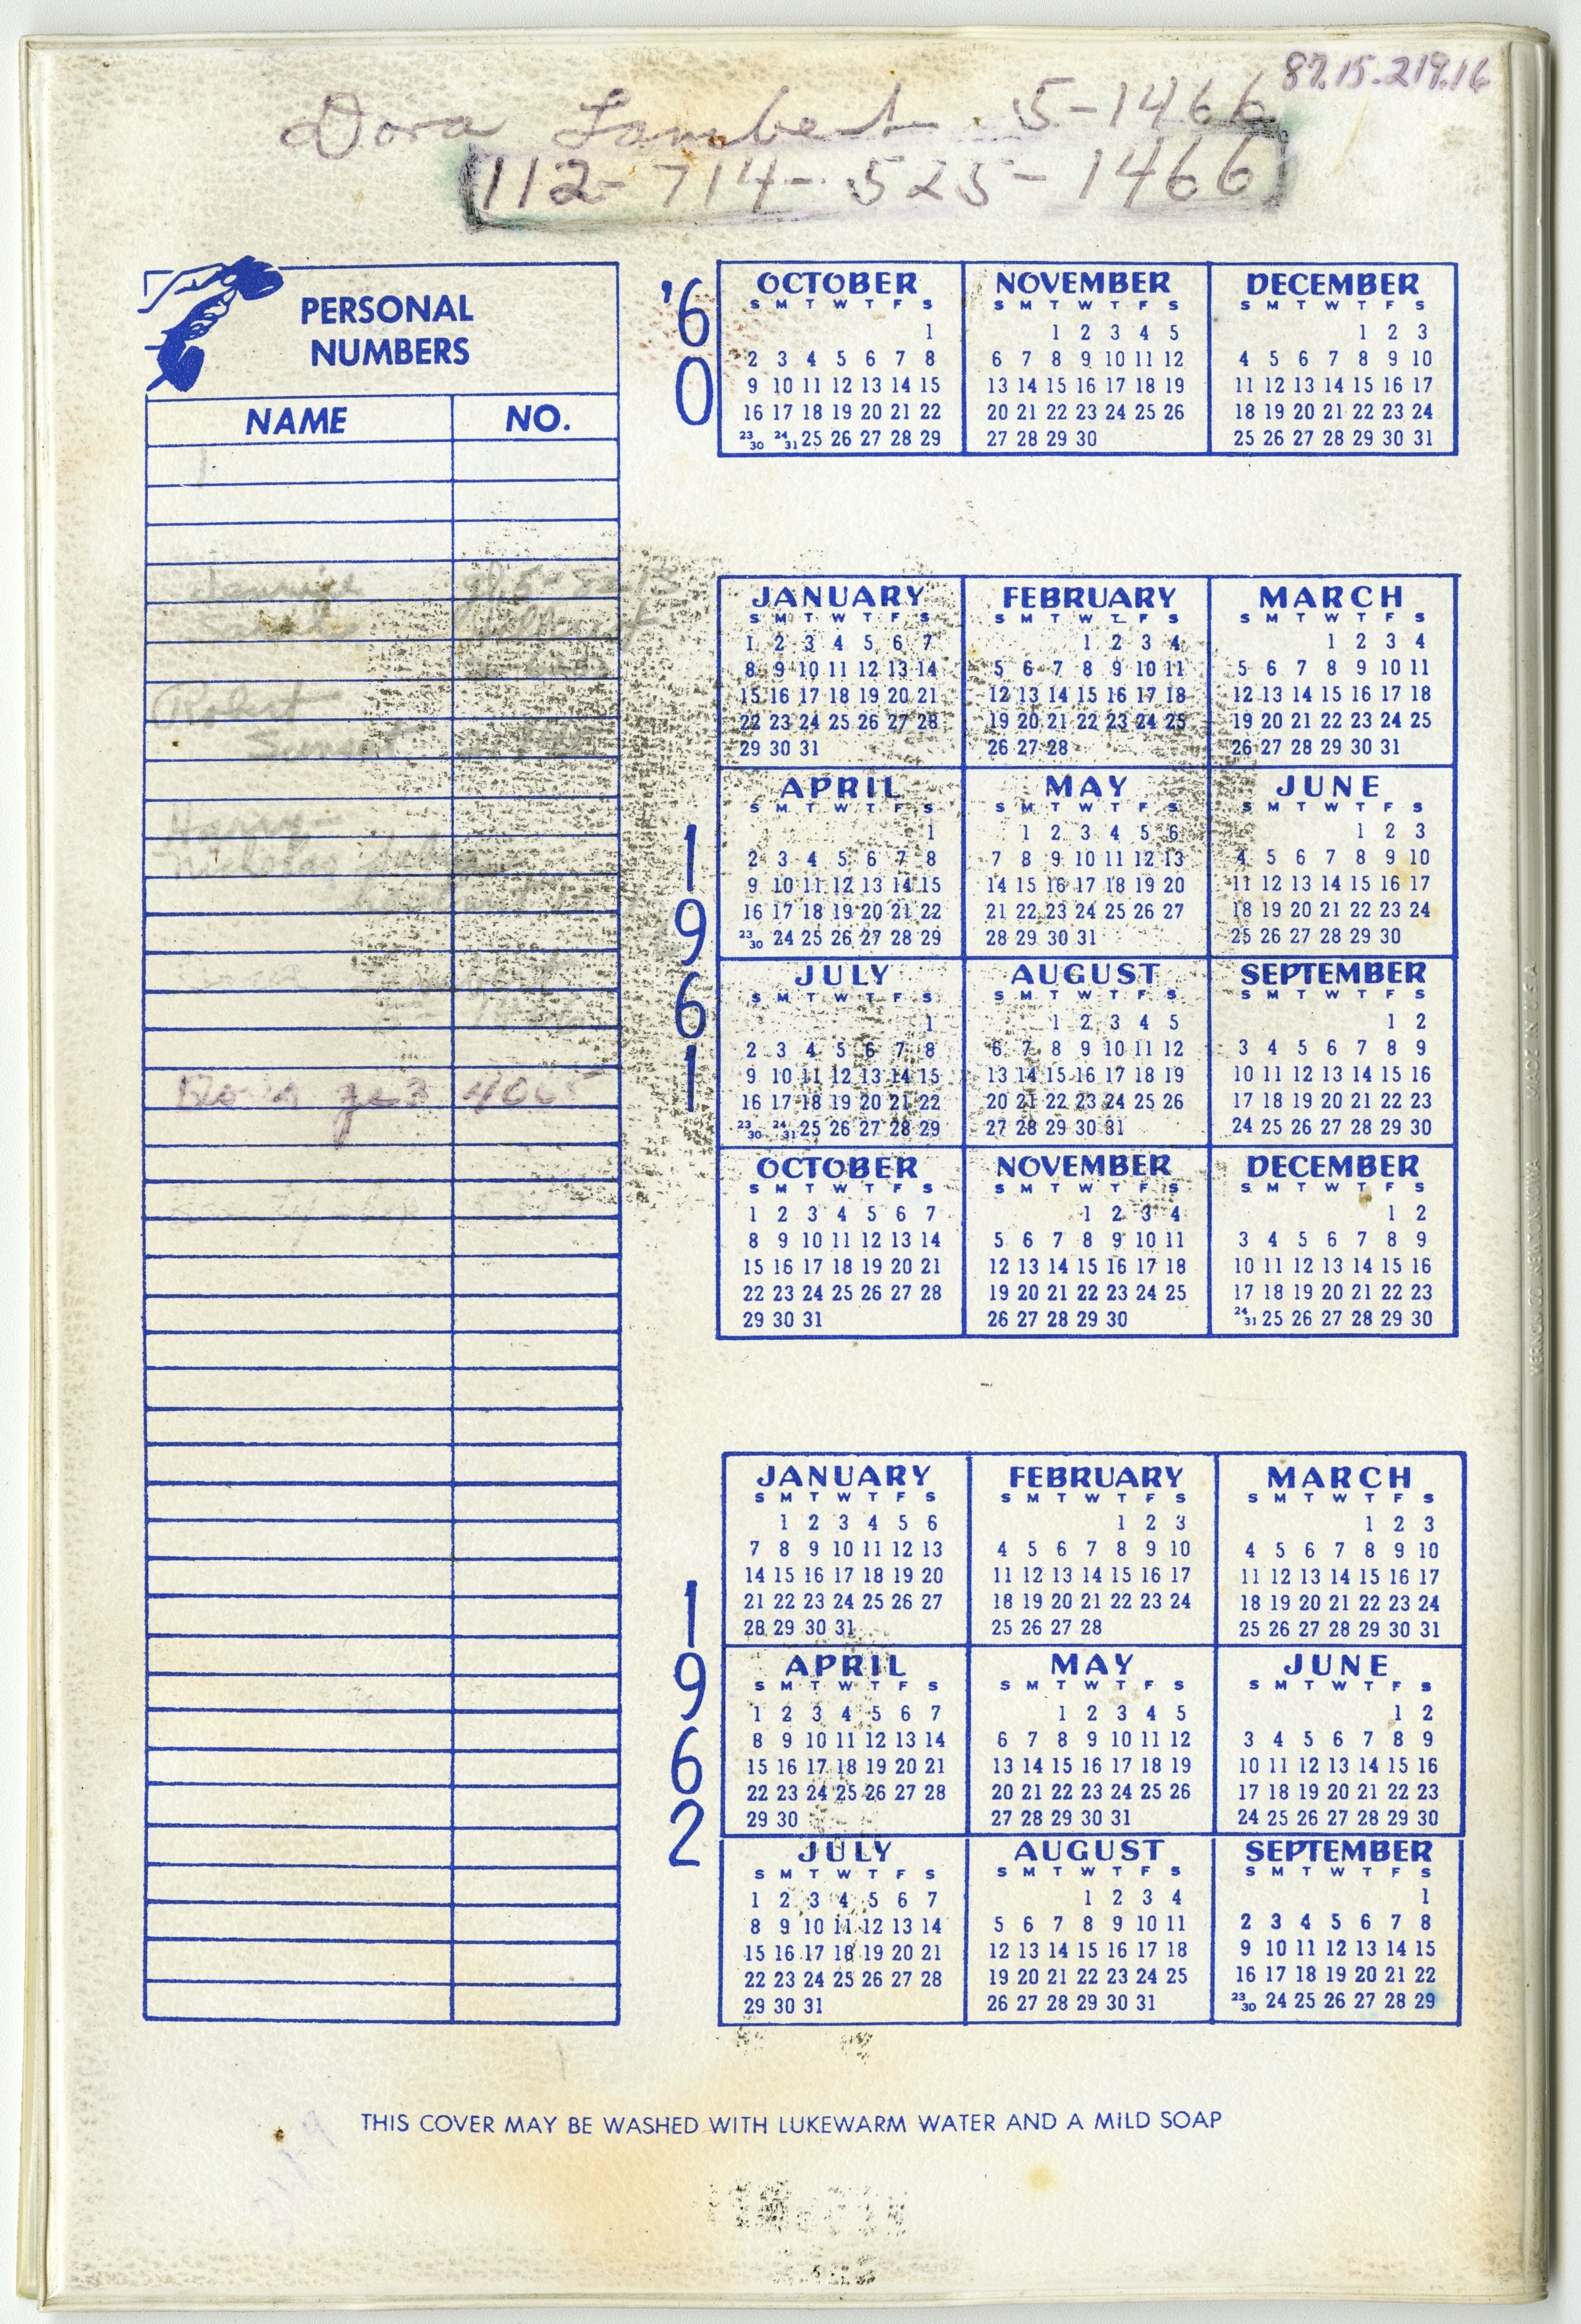 87.15.219.16
Dora Lambert 5-1466
112-714-525-1466
PERSONAL
NUMBERS
NAME NO.
Robert
Sunset
Harry-
4065
'60
OCTOBER
S M T W T F S
1
2 3 4 5 6 7 8
9 10 11 12 13 14 15
16 17 18 19 20 21 22
23/30 24/31 25 26 27 28 29
NOVEMBER
S M T W T F S
1 2 3 4 5
6 7 8 9 10 11 12
13 14 15 16 17 18 19
20 21 22 23 24 25 26
27 28 29 30
DECEMBER
S M T W T F S
1 2 3
4 5 6 7 8 9 10
11 12 13 14 15 16 17
18 19 20 21 22 23 24
25 26 27 28 29 30 31
1961
JANUARY
S M T W T F S
1 2 3 4 5 6 7
8 9 10 11 12 13 14
15 16 17 18 19 20 21
22 23 24 25 26 27 28
29 30 31
FEBRUARY
S M T W T F S
1 2 3 4
5 6 7 8 9 10 11
12 13 14 15 16 17 18
19 20 21 22 23 24 25
26 27 28
MARCH
S M T W T F S
1 2 3 4
5 6 7 8 9 10 11
12 13 14 15 16 17 18
19 20 21 22 23 24 25
26 27 28 29 30 31
APRIL
S M T W T F S
1
2 3 4 5 6 7 8
9 10 11 12 13 14 15
16 17 18 19 20 21 22
23/30 24 25 26 27 28 29
MAY
S M T W T F S
1 2 3 4 5 6
7 8 9 10 11 12 13
14 15 16 17 18 19 20
21 22 23 24 25 26 27
28 29 30 31
JUNE
S M T W T F S
1 2 3
4 5 6 7 8 9 10
11 12 13 14 15 16 17
18 19 20 21 22 23 24
25 26 27 28 29 30
JULY
S M T W T F S
1
2 3 4 5 6 7 8
9 10 11 12 13 14 15
16 17 18 19 20 21 22
23/30 24/31 25 26 27 28 29
AUGUST
S M T W T F S
1 2 3 4 5
6 7 8 9 10 11 12
13 14 15 16 17 18 19
20 21 22 23 24 25 26
27 28 29 30 31
SEPTEMBER
S M T W T F S
1 2
3 4 5 6 7 8 9
10 11 12 13 14 15 16
17 18 19 20 21 22 23
24 25 26 27 28 29 30
OCTOBER
S M T W T F S
1 2 3 4 5 6 7
8 9 10 11 12 13 14
15 16 17 18 19 20 21
22 23 24 25 26 27 28
29 30 31
NOVEMBER
S M T W T F S
1 2 3 4
5 6 7 8 9 10 11
12 13 14 15 16 17 18
19 20 21 22 23 24 25
26 27 28 29 30
DECEMBER
S M T W T F S
1 2
3 4 5 6 7 8 9
10 11 12 13 14 15 16
17 18 19 20 21 22 23
24/31 25 26 27 28 29 30
1962
JANUARY
S M T W T F S
1 2 3 4 5 6
7 8 9 10 11 12 13
14 15 16 17 18 19 20
21 22 23 24 25 26 27
28 29 30 31
FEBRUARY
S M T W T F S
1 2 3
4 5 6 7 8 9 10
11 12 13 14 15 16 17
18 19 20 21 22 23 24
25 26 27 28
MARCH
S M T W T F S
1 2 3
4 5 6 7 8 9 10
11 12 13 14 15 16 17
18 19 20 21 22 23 24
25 26 27 28 29 30 31
APRIL
S M T W T F S
1 2 3 4 5 6 7
8 9 10 11 12 13 14
15 16 17 18 19 20 21
22 23 24 25 26 27 28
29 30
MAY
S M T W T F S
1 2 3 4 5
6 7 8 9 10 11 12
13 14 15 16 17 18 19
20 21 22 23 24 25 26
27 28 29 30 31
JUNE
S M T W T F S
1 2
3 4 5 6 7 8 9
10 11 12 13 14 15 16
17 18 19 20 21 22 23
24 25 26 27 28 29 30
JULY
S M T W T F S
1 2 3 4 5 6 7
8 9 10 11 12 13 14
15 16 17 18 19 20 21
22 23 24 25 26 27 28
29 30 31
AUGUST
S M T W T F S
1 2 3 4
5 6 7 8 9 10 11
12 13 14 15 16 17 18
19 20 21 22 23 24 25
26 27 28 29 30 31
SEPTEMBER
S M T W T F S
1
2 3 4 5 6 7 8
9 10 11 12 13 14 15
16 17 18 19 20 21 22
23/30 24 25 26 27 28 29
THIS COVER MAY BE WASHED WITH LUKEWARM WATER AND A MILD SOAP
MADE IN U.S.A.